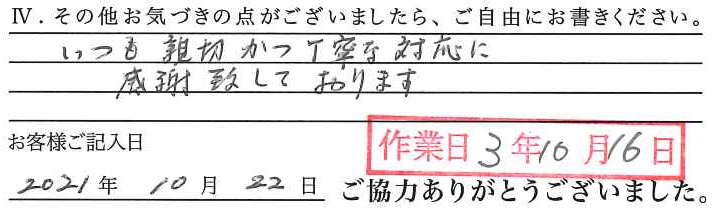 Ⅳ．その他お気づきの点がございましたら、ご自由にお書きください。
いつも親切かつ丁寧な対応に
感謝致しております
お客様ご記入日
作業日 3年10月16日
2021年 10月 22日 ご協力ありがとうございました。